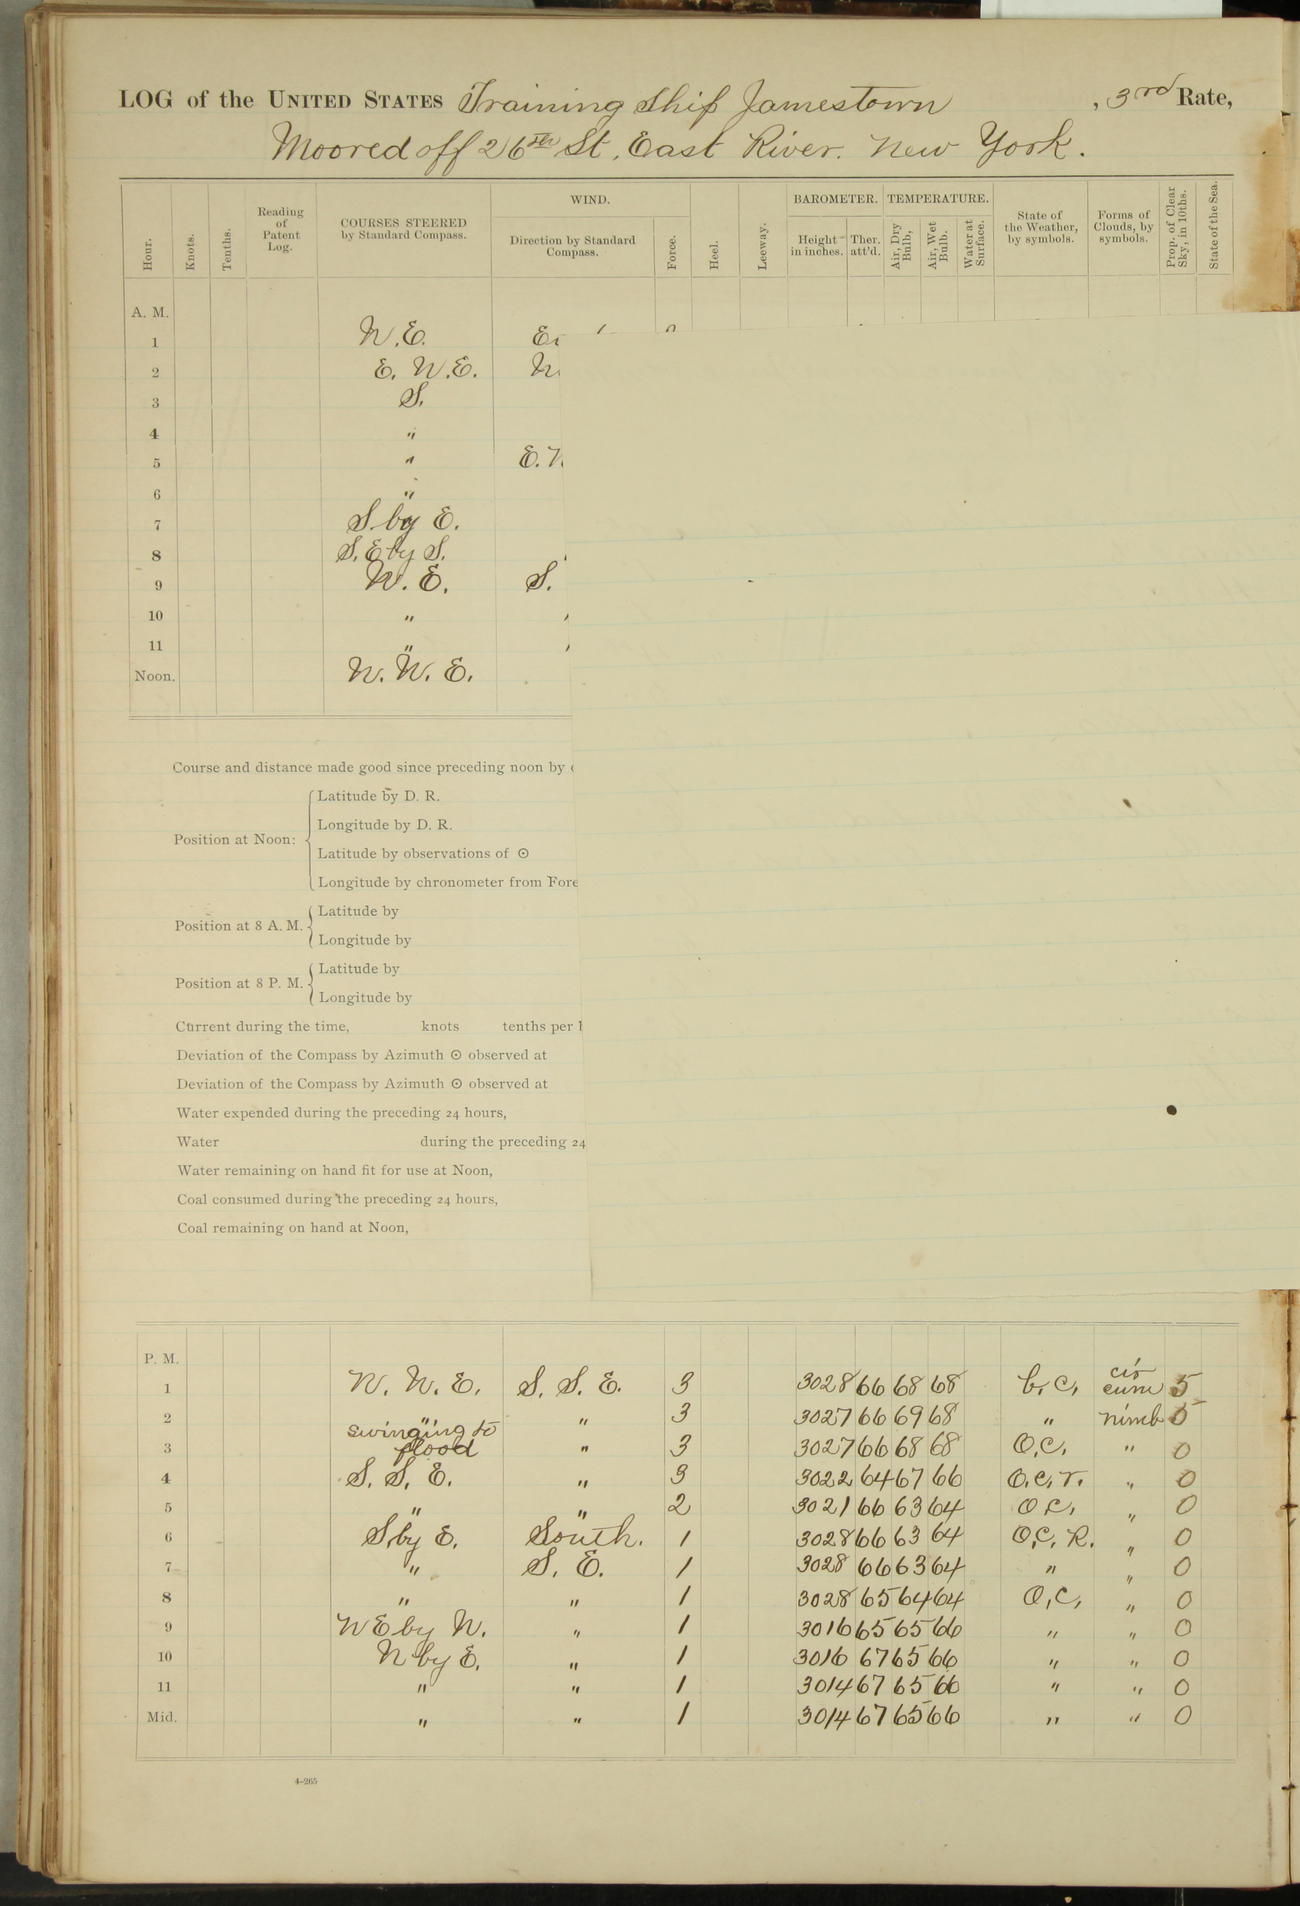 LOG of the UNITED STATES Training Ship Jamestown , 3rd Rate,
Moored off 26th St. East River. New York.
Hour. Knots. Tenths. Reading of Patent Log. COURSES STEERED by Standard Compass. WIND. Direction by Standard Compass. Force. Heel. Leeway. BAROMETER. Height in inches. Ther. att'd. TEMPERATURE. Air, Dry Bulb, Air, Wet Bulb. Water at Surface. State of the Weather, by symbols. Forms of Clouds, by symbols. Prop. of Clear Sky, in 10ths. State of the Sea.
A. M.
1 N.E.
2 E. N.E.
3 S.
4 "
5 " E.
6 "
7 S by E.
8 S.E by S.
9 N. E. S.
10 "
11 "
Noon. N. N. E.
Course and distance made good since preceding noon by
Position at Noon:
Latitude by D. R.
Longitude by D. R.
Latitude by observations of ⊙
Longitude by chronometer from Fore
Position at 8 A. M.
Latitude by
Longitude by
Position at 8 P. M.
Latitude by
Longitude by
Current during the time, knots tenths per
Deviation of the Compass by Azimuth ⊙ observed at
Deviation of the Compass by Azimuth ⊙ observed at
Water expended during the preceding 24 hours,
Water during the preceding 24
Water remaining on hand fit for use at Noon,
Coal consumed during the preceding 24 hours,
Coal remaining on hand at Noon,
P. M.
1 N. N. E. S. S. E. 3 3028 66 68 68 b. c, cir cum 5
2 " " 3 3027 66 69 68 " nimb 0
3 swinging to flood " 3 3027 66 68 68 O.C. " 0
4 S. S. E. " 3 3022 64 67 66 O.C.r. " 0
5 " " 2 3021 66 63 64 O C, " 0
6 S by E. South. 1 3028 66 63 64 O,C, R. " 0
7 " S. E. 1 3028 66 63 64 " " 0
8 " " 1 3028 65 64 64 O,C, " 0
9 NE by N. " 1 3016 65 65 66 " " 0
10 N by E. " 1 3016 67 65 66 " " 0
11 " " 1 3014 67 65 66 " " 0
Mid. " " 1 3014 67 65 66 " " 0
4-265